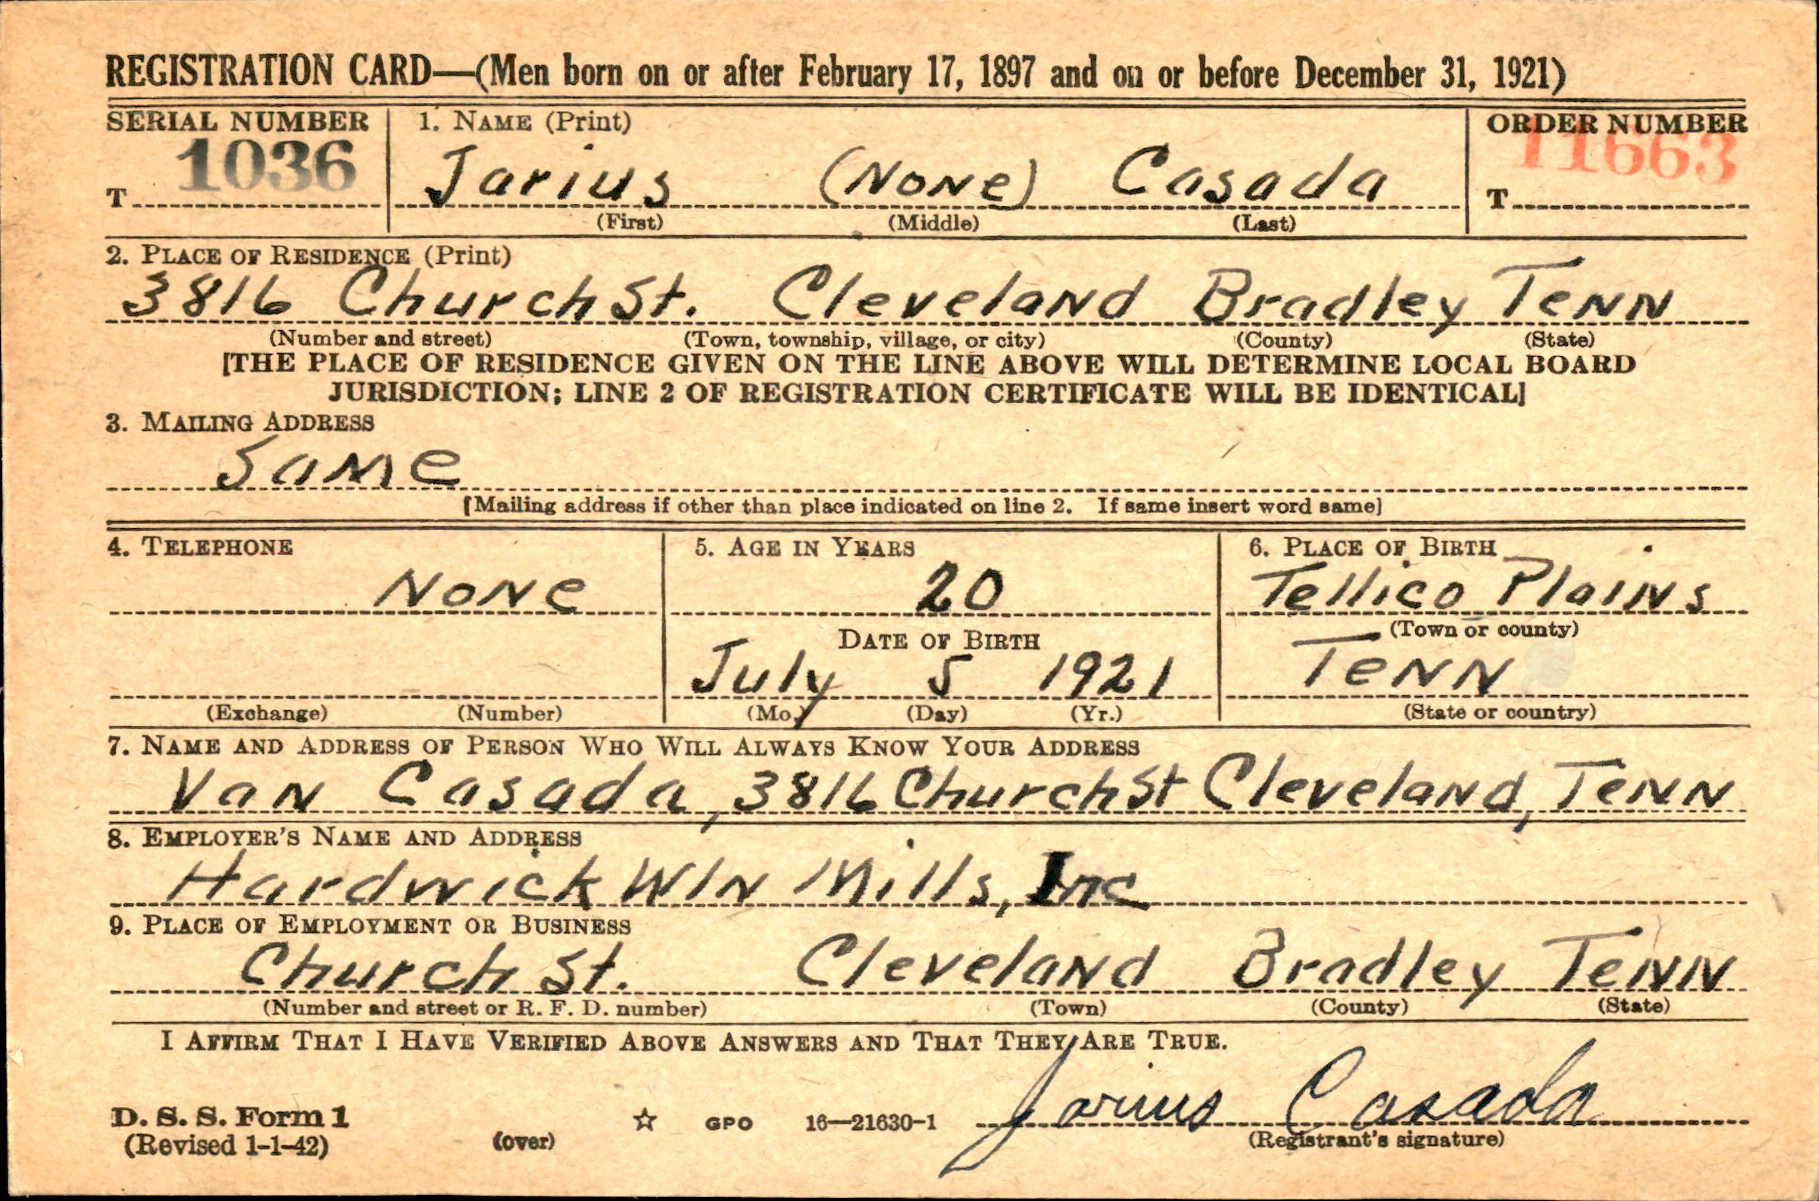 REGISTRATION CARD—(Men born on or after February 17, 1897 and on or before December 31, 1921)
SERIAL NUMBER 1. NAME (Print) ORDER NUMBER
T 1036 Jarius (None) Casada T 11663
(First) (Middle) (Last)
2. PLACE OF RESIDENCE (Print)
3816 Church St. Cleveland Bradley Tenn
(Number and street) (Town, township, village, or city) (County) (State)
[THE PLACE OF RESIDENCE GIVEN ON THE LINE ABOVE WILL DETERMINE LOCAL BOARD
JURISDICTION; LINE 2 OF REGISTRATION CERTIFICATE WILL BE IDENTICAL]
3. MAILING ADDRESS
Same
[Mailing address if other than place indicated on line 2. If same insert word same]
4. TELEPHONE 5. AGE IN YEARS 6. PLACE OF BIRTH
None 20 Tellico Plains
DATE OF BIRTH (Town or county)
July 5 1921 Tenn
(Exchange) (Number) (Mo.) (Day) (Yr.) (State or country)
7. NAME AND ADDRESS OF PERSON WHO WILL ALWAYS KNOW YOUR ADDRESS
Van Casada, 3816 Church St Cleveland, Tenn
8. EMPLOYER'S NAME AND ADDRESS
Hardwick Wln Mills, Inc
9. PLACE OF EMPLOYMENT OR BUSINESS
Church St. Cleveland Bradley Tenn
(Number and street or R. F. D. number) (Town) (County) (State)
I AFFIRM THAT I HAVE VERIFIED ABOVE ANSWERS AND THAT THEY ARE TRUE.
Jarius Casada
D. S. S. Form 1 GPO 16—21630-1
(Revised 1-1-42) (over) (Registrant's signature)